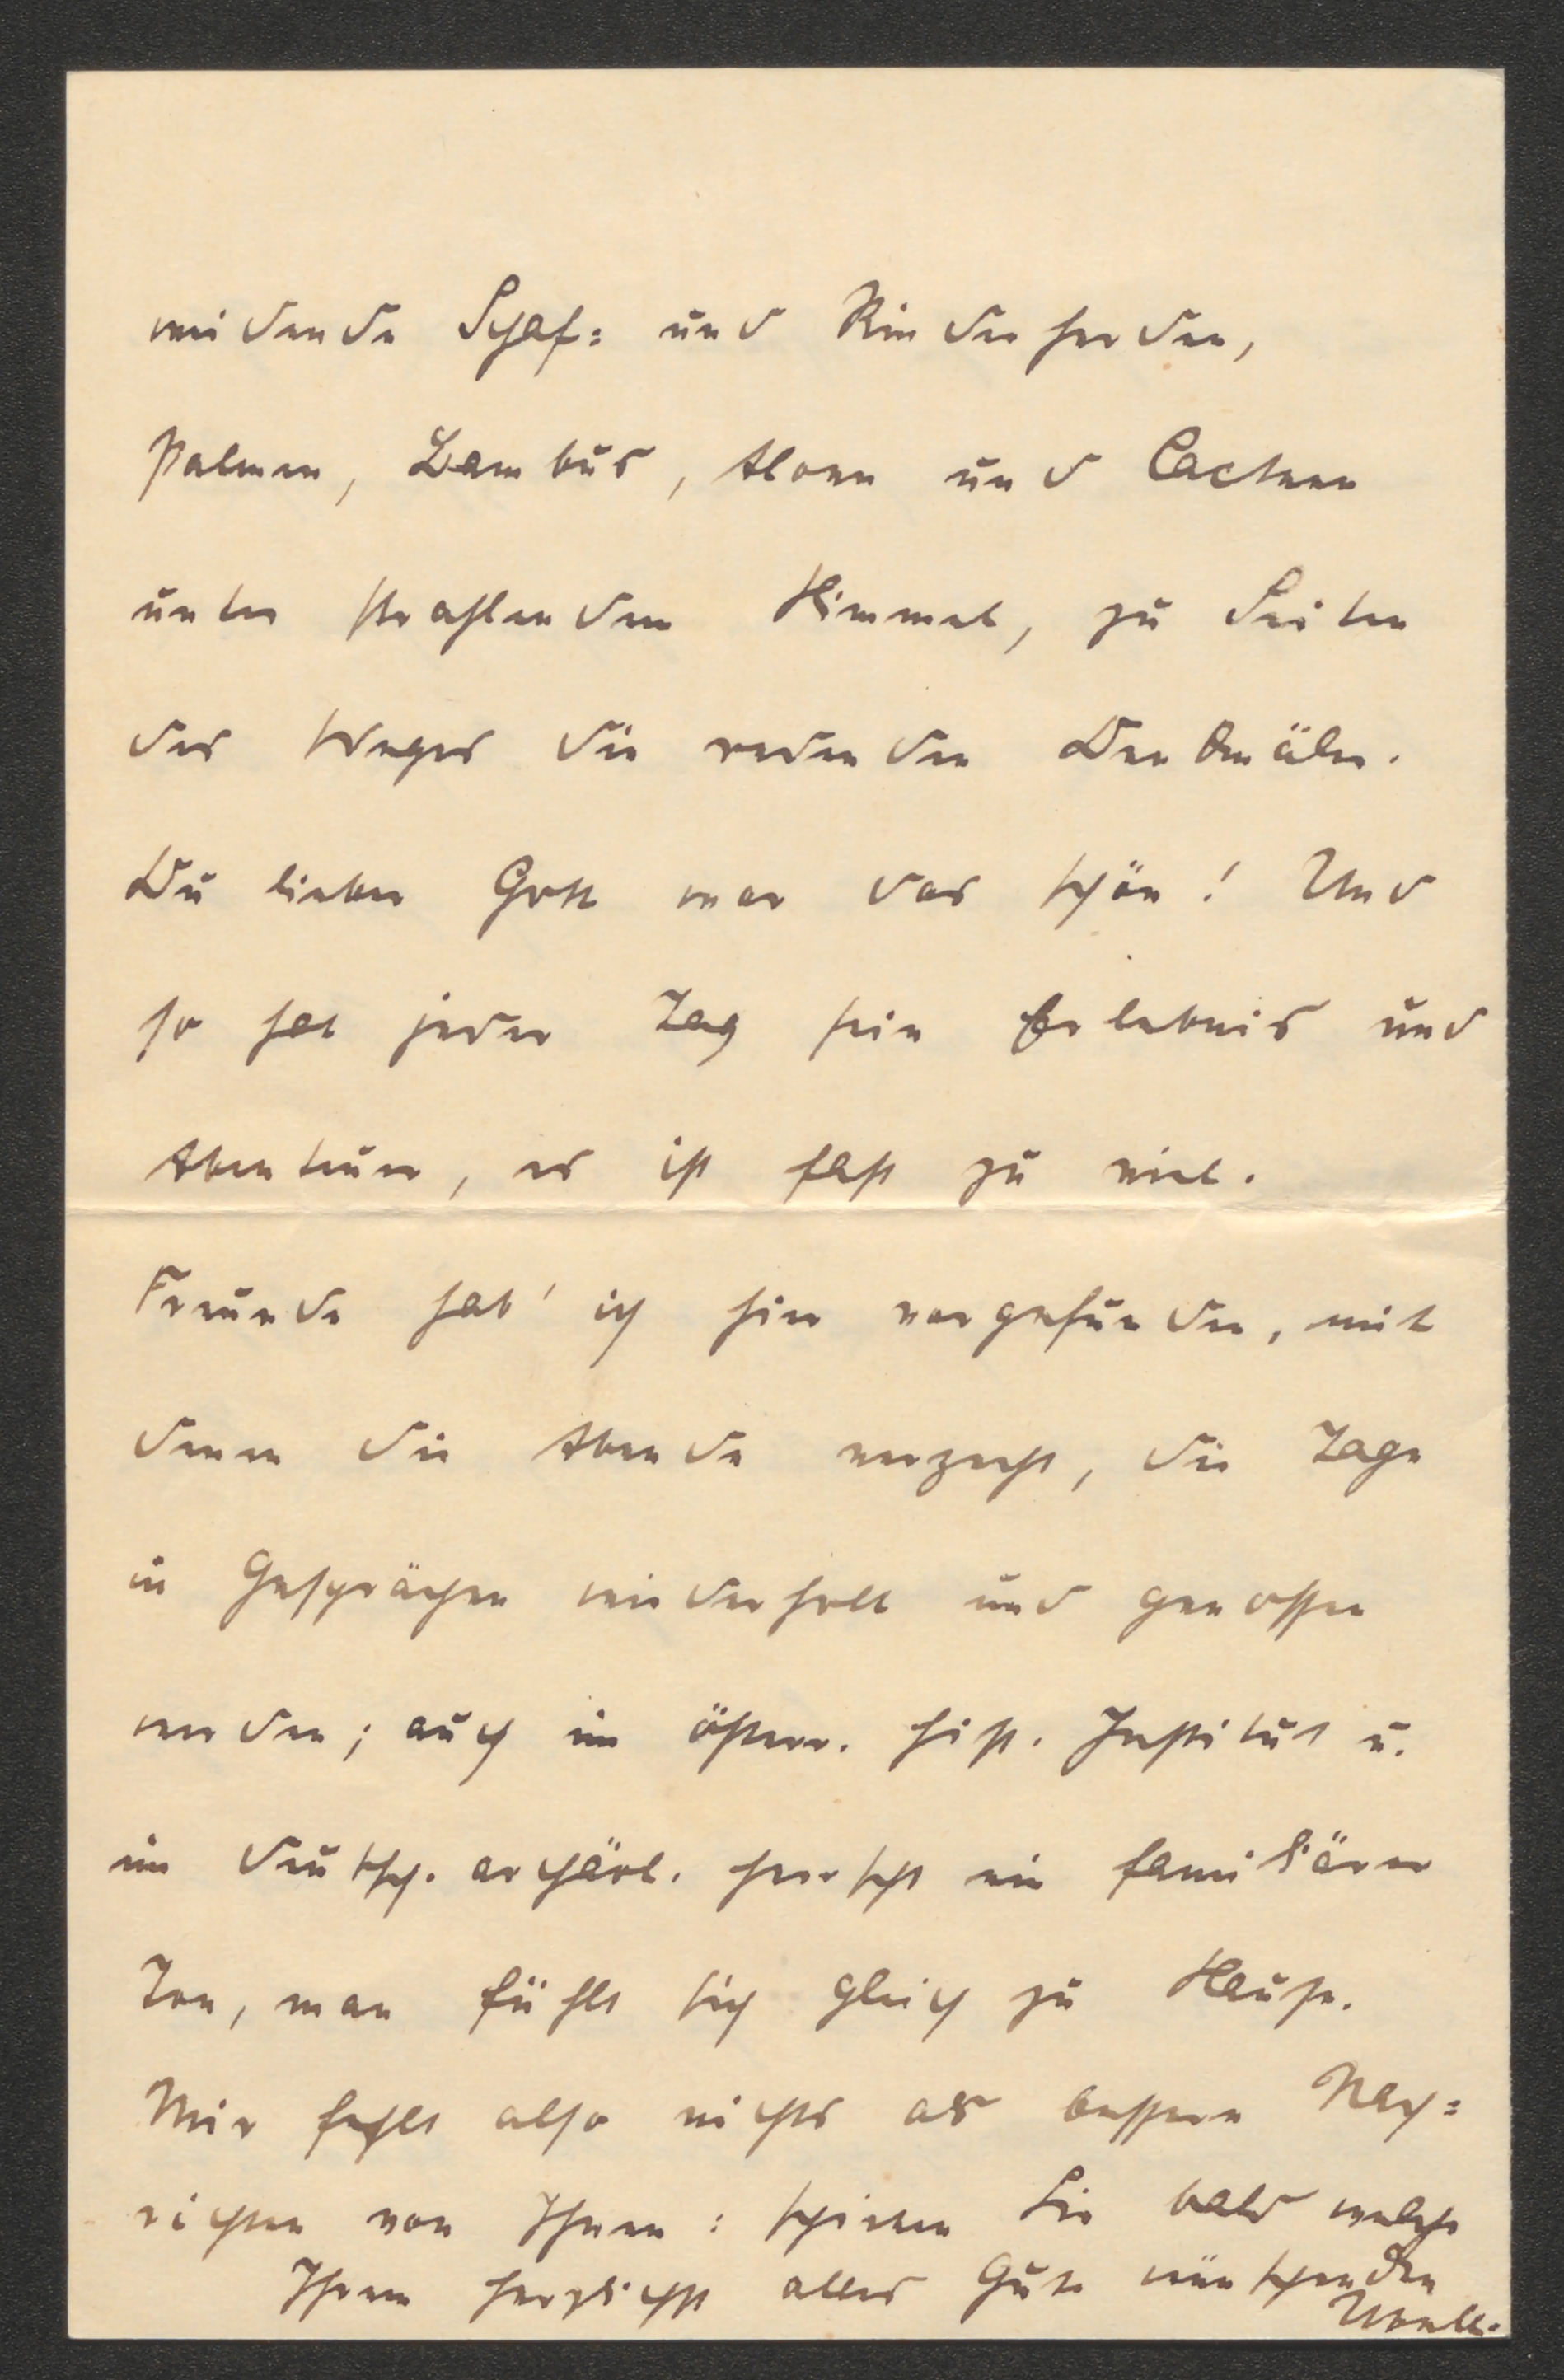 weidende Schaf= und Rinderherden,
Palmen, Bambus, Aloen und Cacteen
unter strahlendem Himmel, zu Seiten
des Weges die redenden Denkmäler.
Du lieber Gott war das schön! Und
so hat jeder Tag sein Erlebnis und
Abenteuer, es ist fast zu viel.
Freunde hab' ich hier vorgefunden, mit
denen die Abende verzecht, die Tage
in Gesprächen wiederholt und genossen
werden; auch im österr. hist. Institut u.
im deutsch. archäol. herrscht ein familiärer
Ton, man fühlt sich gleich zu Hause.
Mir fehlt also nichts als bessere Nach=
richten von Ihnen: schicken Sie bald welche
Ihrem herzlichst alles Gute wünschenden